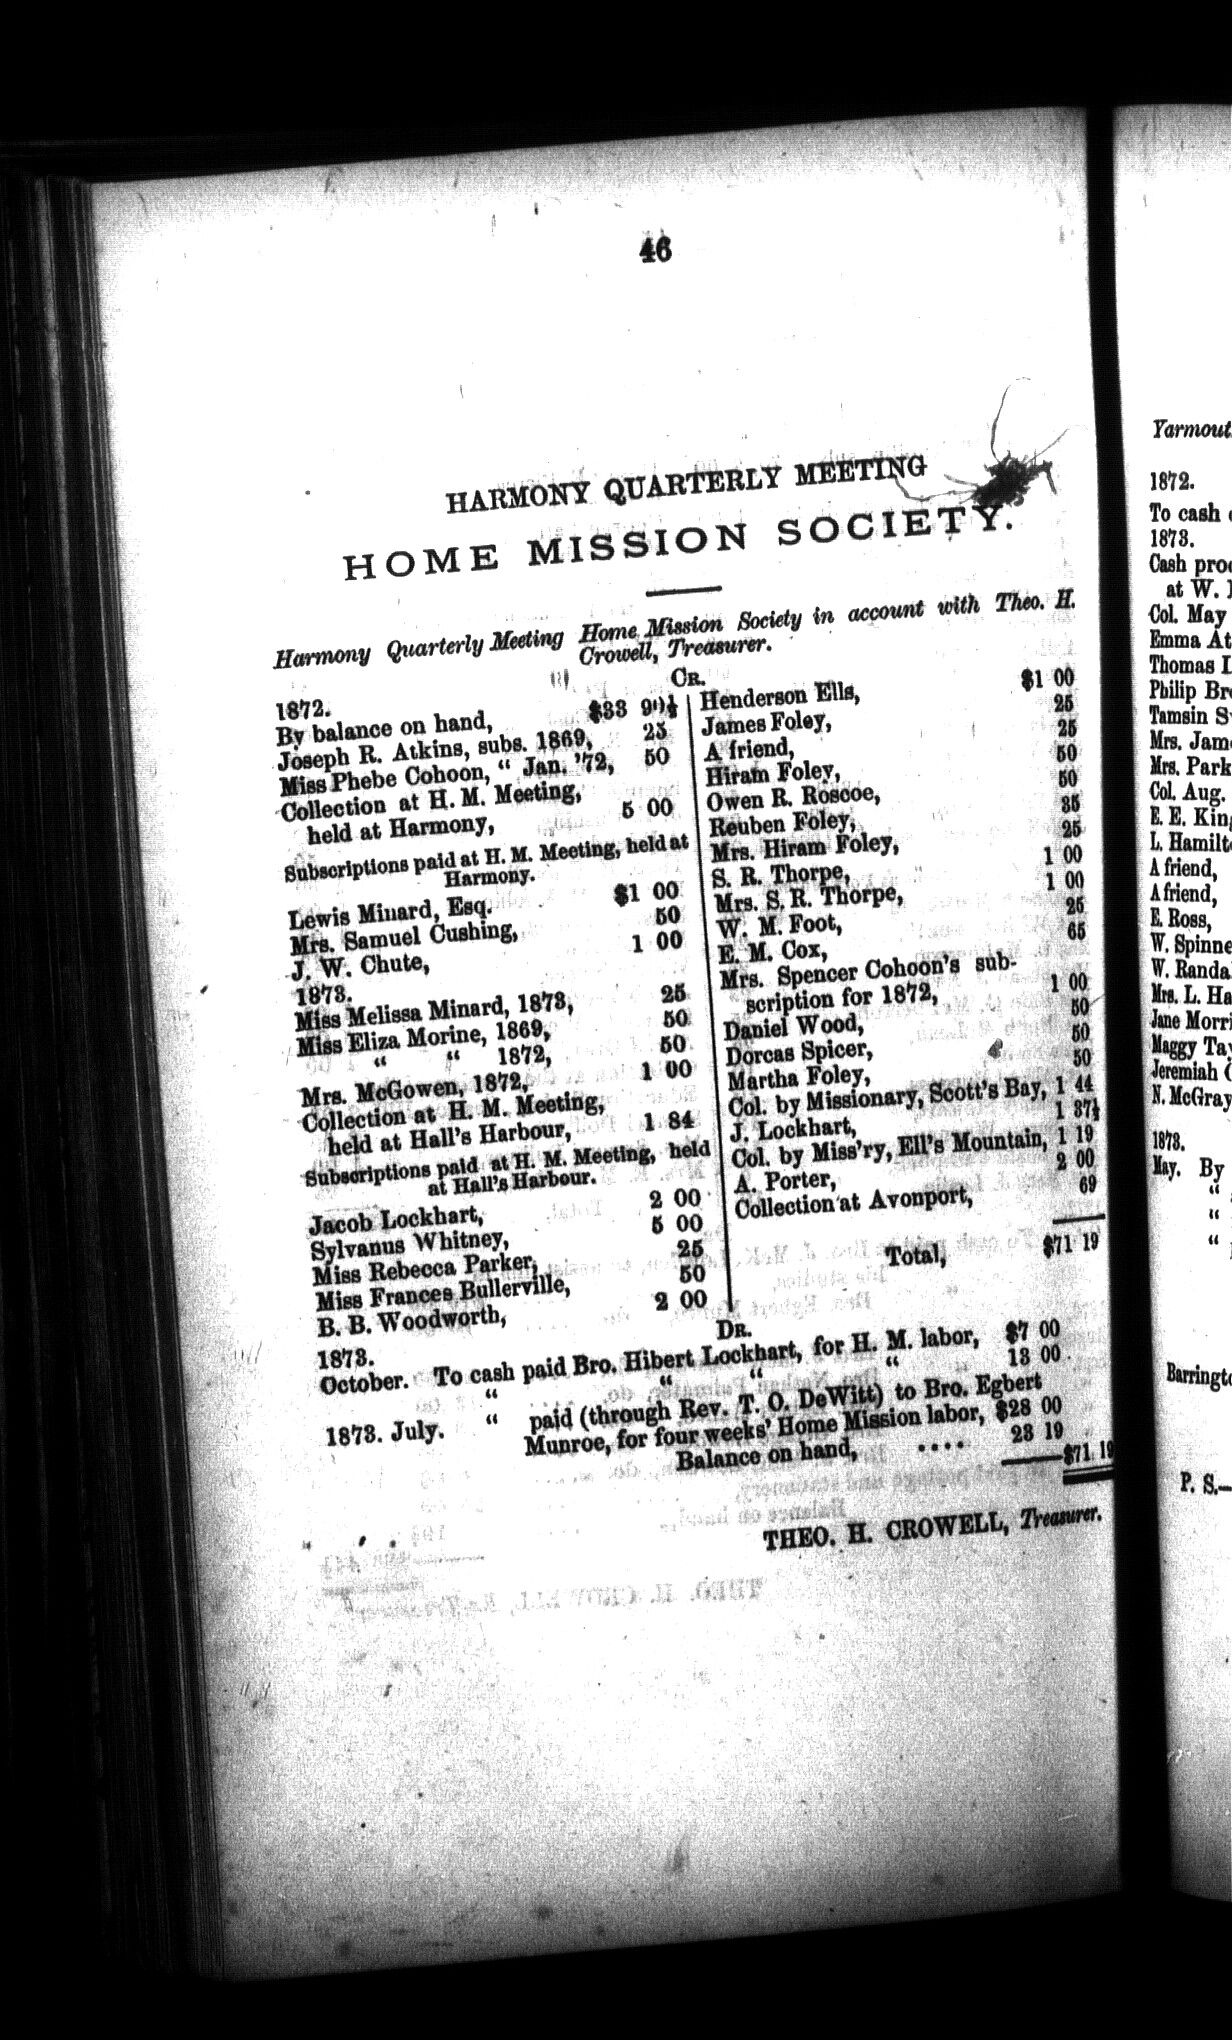 46
HARMONY QUARTERLY MEETING
HOME MISSION SOCIETY.
Harmony Quarterly Meeting Home Mission Society in account with Theo. H.
Crowell, Treasurer.
CR.
1872.
By balance on hand, $33 90½
Joseph R. Atkins, subs. 1869, 25
Miss Phebe Cohoon, “ Jan. '72, 50
Collection at H. M. Meeting,
held at Harmony, 5 00
Subscriptions paid at H. M. Meeting, held at
Harmony.
Lewis Minard, Esq. $1 00
Mrs. Samuel Cushing, 50
J. W. Chute, 1 00
1873.
Miss Melissa Minard, 1873, 25
Miss Eliza Morine, 1869, 50
“ “ 1872, 50
Mrs. McGowen, 1872, 1 00
Collection at H. M. Meeting,
held at Hall's Harbour, 1 84
Subscriptions paid at H. M. Meeting, held
at Hall's Harbour.
Jacob Lockhart, 2 00
Sylvanus Whitney, 5 00
Miss Rebecca Parker, 25
Miss Frances Bullerville, 50
B. B. Woodworth, 2 00
Henderson Ells, $1 00
James Foley, 25
A friend, 25
Hiram Foley, 50
Owen R. Roscoe, 50
Reuben Foley, 35
Mrs. Hiram Foley, 25
S. R. Thorpe, 1 00
Mrs. S. R. Thorpe, 1 00
W. M. Foot, 25
E. M. Cox, 65
Mrs. Spencer Cohoon's sub-
scription for 1872, 1 00
Daniel Wood, 50
Dorcas Spicer, 50
Martha Foley, 50
Col. by Missionary, Scott's Bay, 1 44
J. Lockhart, 1 37½
Col. by Miss'ry, Ell's Mountain, 1 19
A. Porter, 2 00
Collection at Avonport, 69
Total, $71 19
DR.
1873.
October. To cash paid Bro. Hibert Lockhart, for H. M. labor, $7 00
“ “ “ “ 13 00
1873. July. “ paid (through Rev. T. O. DeWitt) to Bro. Egbert
Munroe, for four weeks' Home Mission labor, $28 00
Balance on hand, .... 23 19
$71 19
THEO. H. CROWELL, Treasurer.
1872.
To cash
1873.
Cash
at W.
Col. May
Emma
Thomas
Philip
Tamsin
Mrs.
Mrs.
Col. Aug.
E. E.
L.
A friend,
A friend,
E. Ross,
W.
W.
Mrs. L.
Jane
Maggy
Jeremiah
N.
1873.
May. By
“
“
“
P. S.—